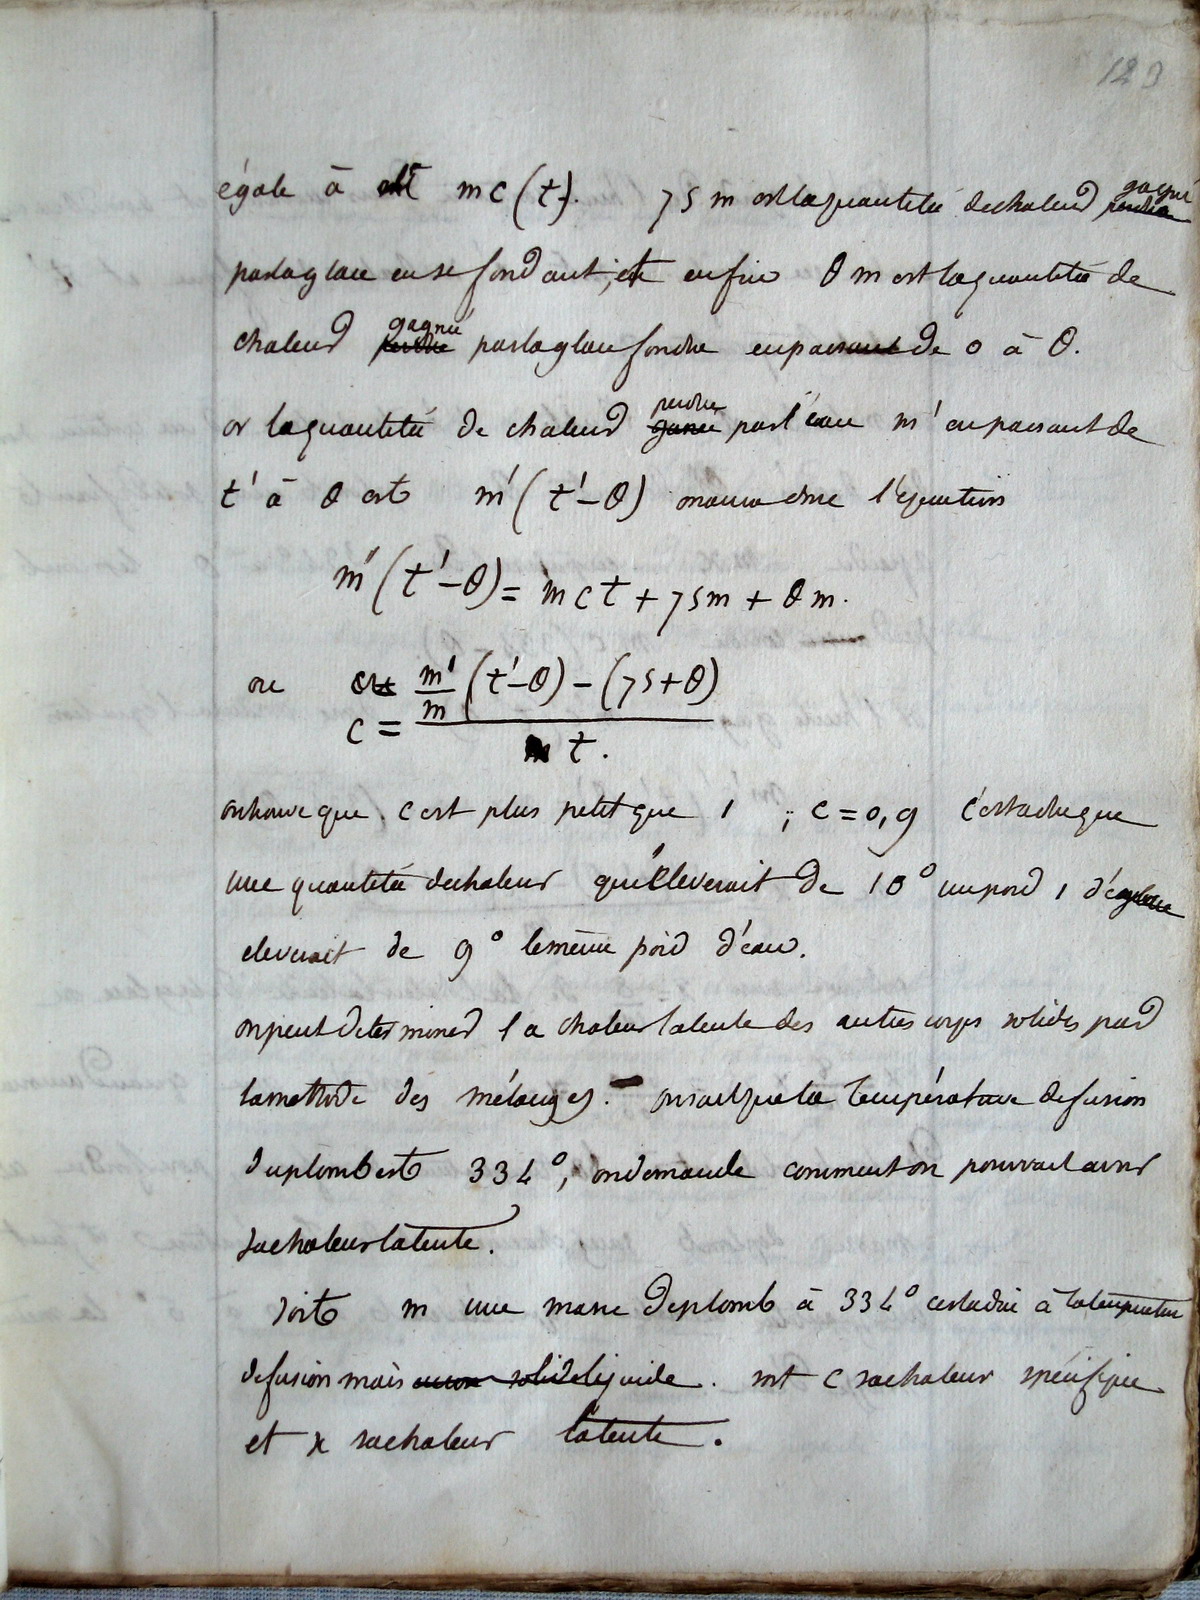 123
égale à mc(t). 75 m est la quantité de chaleur perdue gagné
par la glace en se fondant; et enfin θ m est la quantité de
chaleur perdue gagnée par la glace fondue en passant de 0 à θ.
or la quantité de chaleur ganée perdue par l'eau m' en passant de
t' à θ est m'(t'-θ) on aura donc l'équation
m'(t'-θ) = mct + 75m + θm.
ou c = m'/m (t'-θ) - (75+θ)
t.
on trouve que c est plus petit que 1 ; c=0,9 c'est a dire que
une quantité de chaleur qui éleverait de 10° un poid 1 de glace
eleverait de 9° le même poid d'eau.
on peut determiner la chaleur latente des autres corps solides par
la methode des mélanges. on sait que la température de fusion
du plomb est 334°, on demande comment on pourrait avoir
sa chaleur latente.
soit m une masse de plomb à 334° cest a dire à la temperature
de fusion mais encore solide liquide. soit c sa chaleur spécifique
et x sa chaleur latente.